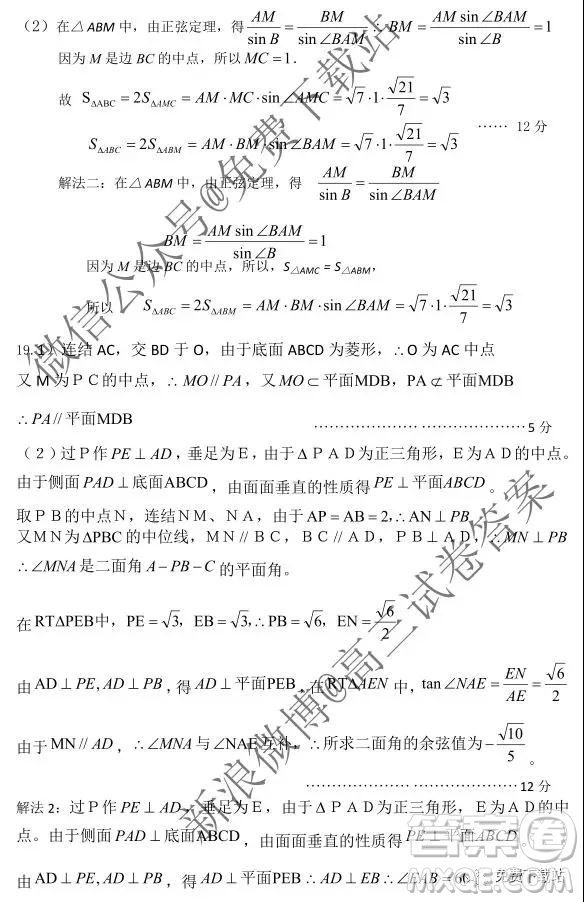 （2）在△ABM 中，由正弦定理，得 AM/sin B = BM/sin∠BAM ∴ BM = AM sin∠BAM/sin∠B = 1
因为 M 是边 BC 的中点，所以 MC = 1．
故 S△ABC = 2S△AMC = AM·MC·sin∠AMC = √7·1·√21/7 = √3
S△ABC = 2S△ABM = AM·BM·sin∠BAM = √7·1·√21/7 = √3 …… 12分
解法二：在△ABM 中，由正弦定理，得 AM/sin B = BM/sin∠BAM
BM = AM sin∠BAM/sin∠B = 1
因为 M 是边 BC 的中点，所以，S△AMC = S△ABM，
所以 S△ABC = 2S△ABM = AM·BM·sin∠BAM = √7·1·√21/7 = √3
19. 1）连结 AC，交 BD 于 O，由于底面 ABCD 为菱形，∴O 为 AC 中点
又 M 为ＰＣ的中点，∴ MO // PA，又 MO ⊂ 平面MDB，PA ⊄ 平面MDB
∴ PA // 平面MDB
……………………………………5分
（２）过Ｐ作 PE ⊥ AD，垂足为Ｅ，由于ΔＰＡＤ为正三角形，Ｅ为ＡＤ的中点。
由于侧面 PAD ⊥ 底面ABCD，由面面垂直的性质得 PE ⊥ 平面ABCD。
取ＰＢ的中点Ｎ，连结ＮＭ、ＮＡ，由于 AP = AB = 2,∴AN ⊥ PB
又ＭＮ为ΔPBC 的中位线，ＭＮ∥ＢＣ，ＢＣ∥ＡＤ，ＰＢ⊥ＡＤ，∴ MN ⊥ PB
∴∠MNA 是二面角 A－PB－C 的平面角。
在 RTΔPEB中，PE = √3，EB = √3,∴PB = √6, EN = √6/2
由 AD ⊥ PE, AD ⊥ PB，得 AD ⊥ 平面PEB，在 RTΔAEN 中，tan∠NAE = EN/AE = √6/2
由于 MN // AD，∴∠MNA 与∠NAE 互补，∴所求二面角的余弦值为 －√10/5。
……………………………………12分
解法 2：过Ｐ作 PE ⊥ AD，垂足为Ｅ，由于ΔＰＡＤ为正三角形，Ｅ为ＡＤ的中
点。由于侧面 PAD ⊥ 底面ABCD，由面面垂直的性质得 PE ⊥ 平面ABCD。
由 AD ⊥ PE, AD ⊥ PB，得 AD ⊥ 平面PEB ∴ AD ⊥ EB ∴∠EAB = 60
微信公众号@免费下载站
新浪微博@高三试卷答案
答案圈
MXQE.COM
免费下载站